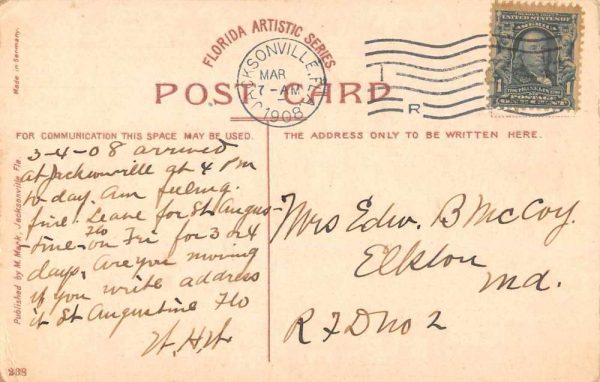 Made in Germany.
FLORIDA ARTISTIC SERIES.
JACKSONVILLE, FLA.
MAR
7-AM
1908
I
R
UNITED STATES OF
FRANKLIN
1 1
ONE CENT
POST CARD
FOR COMMUNICATION THIS SPACE MAY BE USED.
THE ADDRESS ONLY TO BE WRITTEN HERE.
Published by M. Mark, Jacksonville Fla.
3-4-08 arrived
at Jacksonville at 4 PM
to day. Am feeling
fine. Leave for St Augus-
tine Flo on Fri for 3 or 4
days, Are you moving
if you write address
it St Augustine Flo
W.H.W.
Mrs Edw. B McCoy.
Elkton
Md.
R F D no 2
238